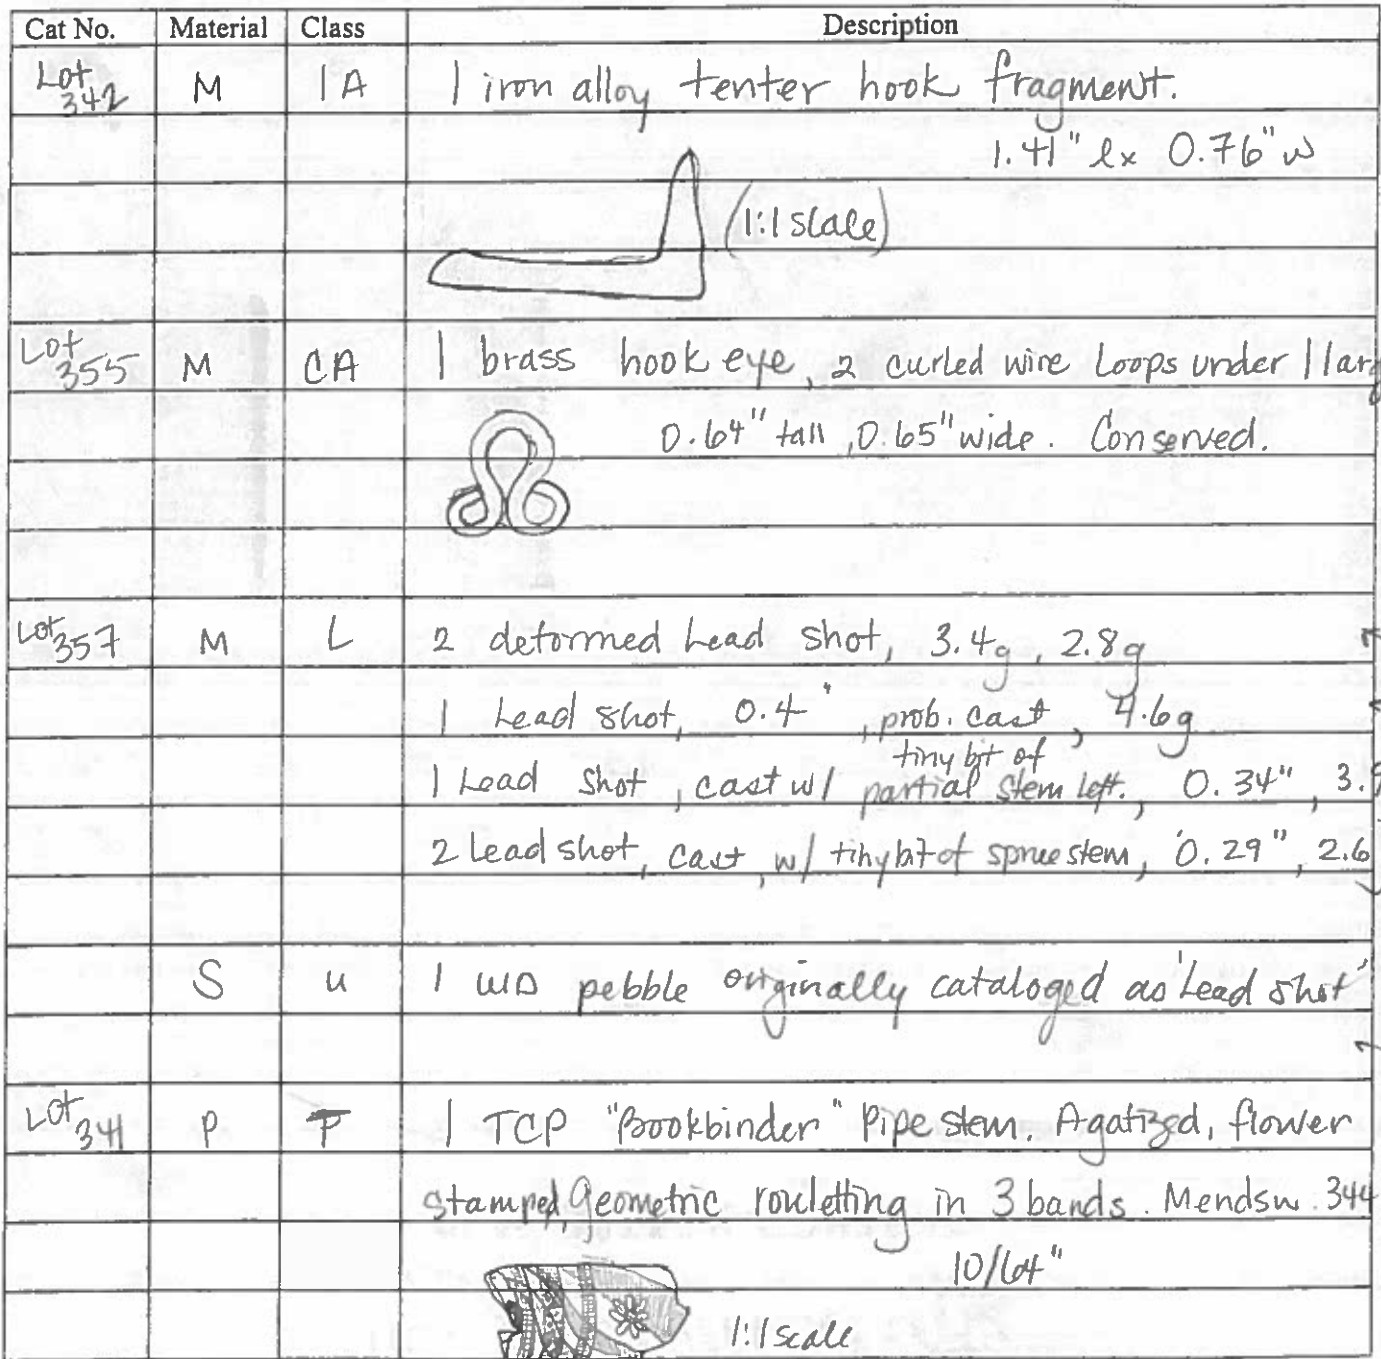 Cat No. Material Class Description
Lot 342 M IA 1 iron alloy tenter hook fragment.
1.41" l x 0.76" w
(1:1 scale)
Lot 355 M CA 1 brass hook eye, 2 curled wire loops under 1 larg
0.64" tall, 0.65" wide. Conserved.
Lot 357 M L 2 deformed Lead shot, 3.4g, 2.8g
1 Lead shot, 0.4", prob. cast, 4.6g
tiny bit of
1 Lead shot, cast w/ partial stem left, 0.34", 3.9
2 Lead shot, cast, w/ tiny bit of sprue stem, 0.29", 2.6
S U 1 WD pebble originally cataloged as 'Lead shot'
Lot 341 P T 1 TCP "Bookbinder" Pipe stem. Agatized, flower
stamped, Geometric rouletting in 3 bands. Mends w. 344
10/64"
1:1 scale